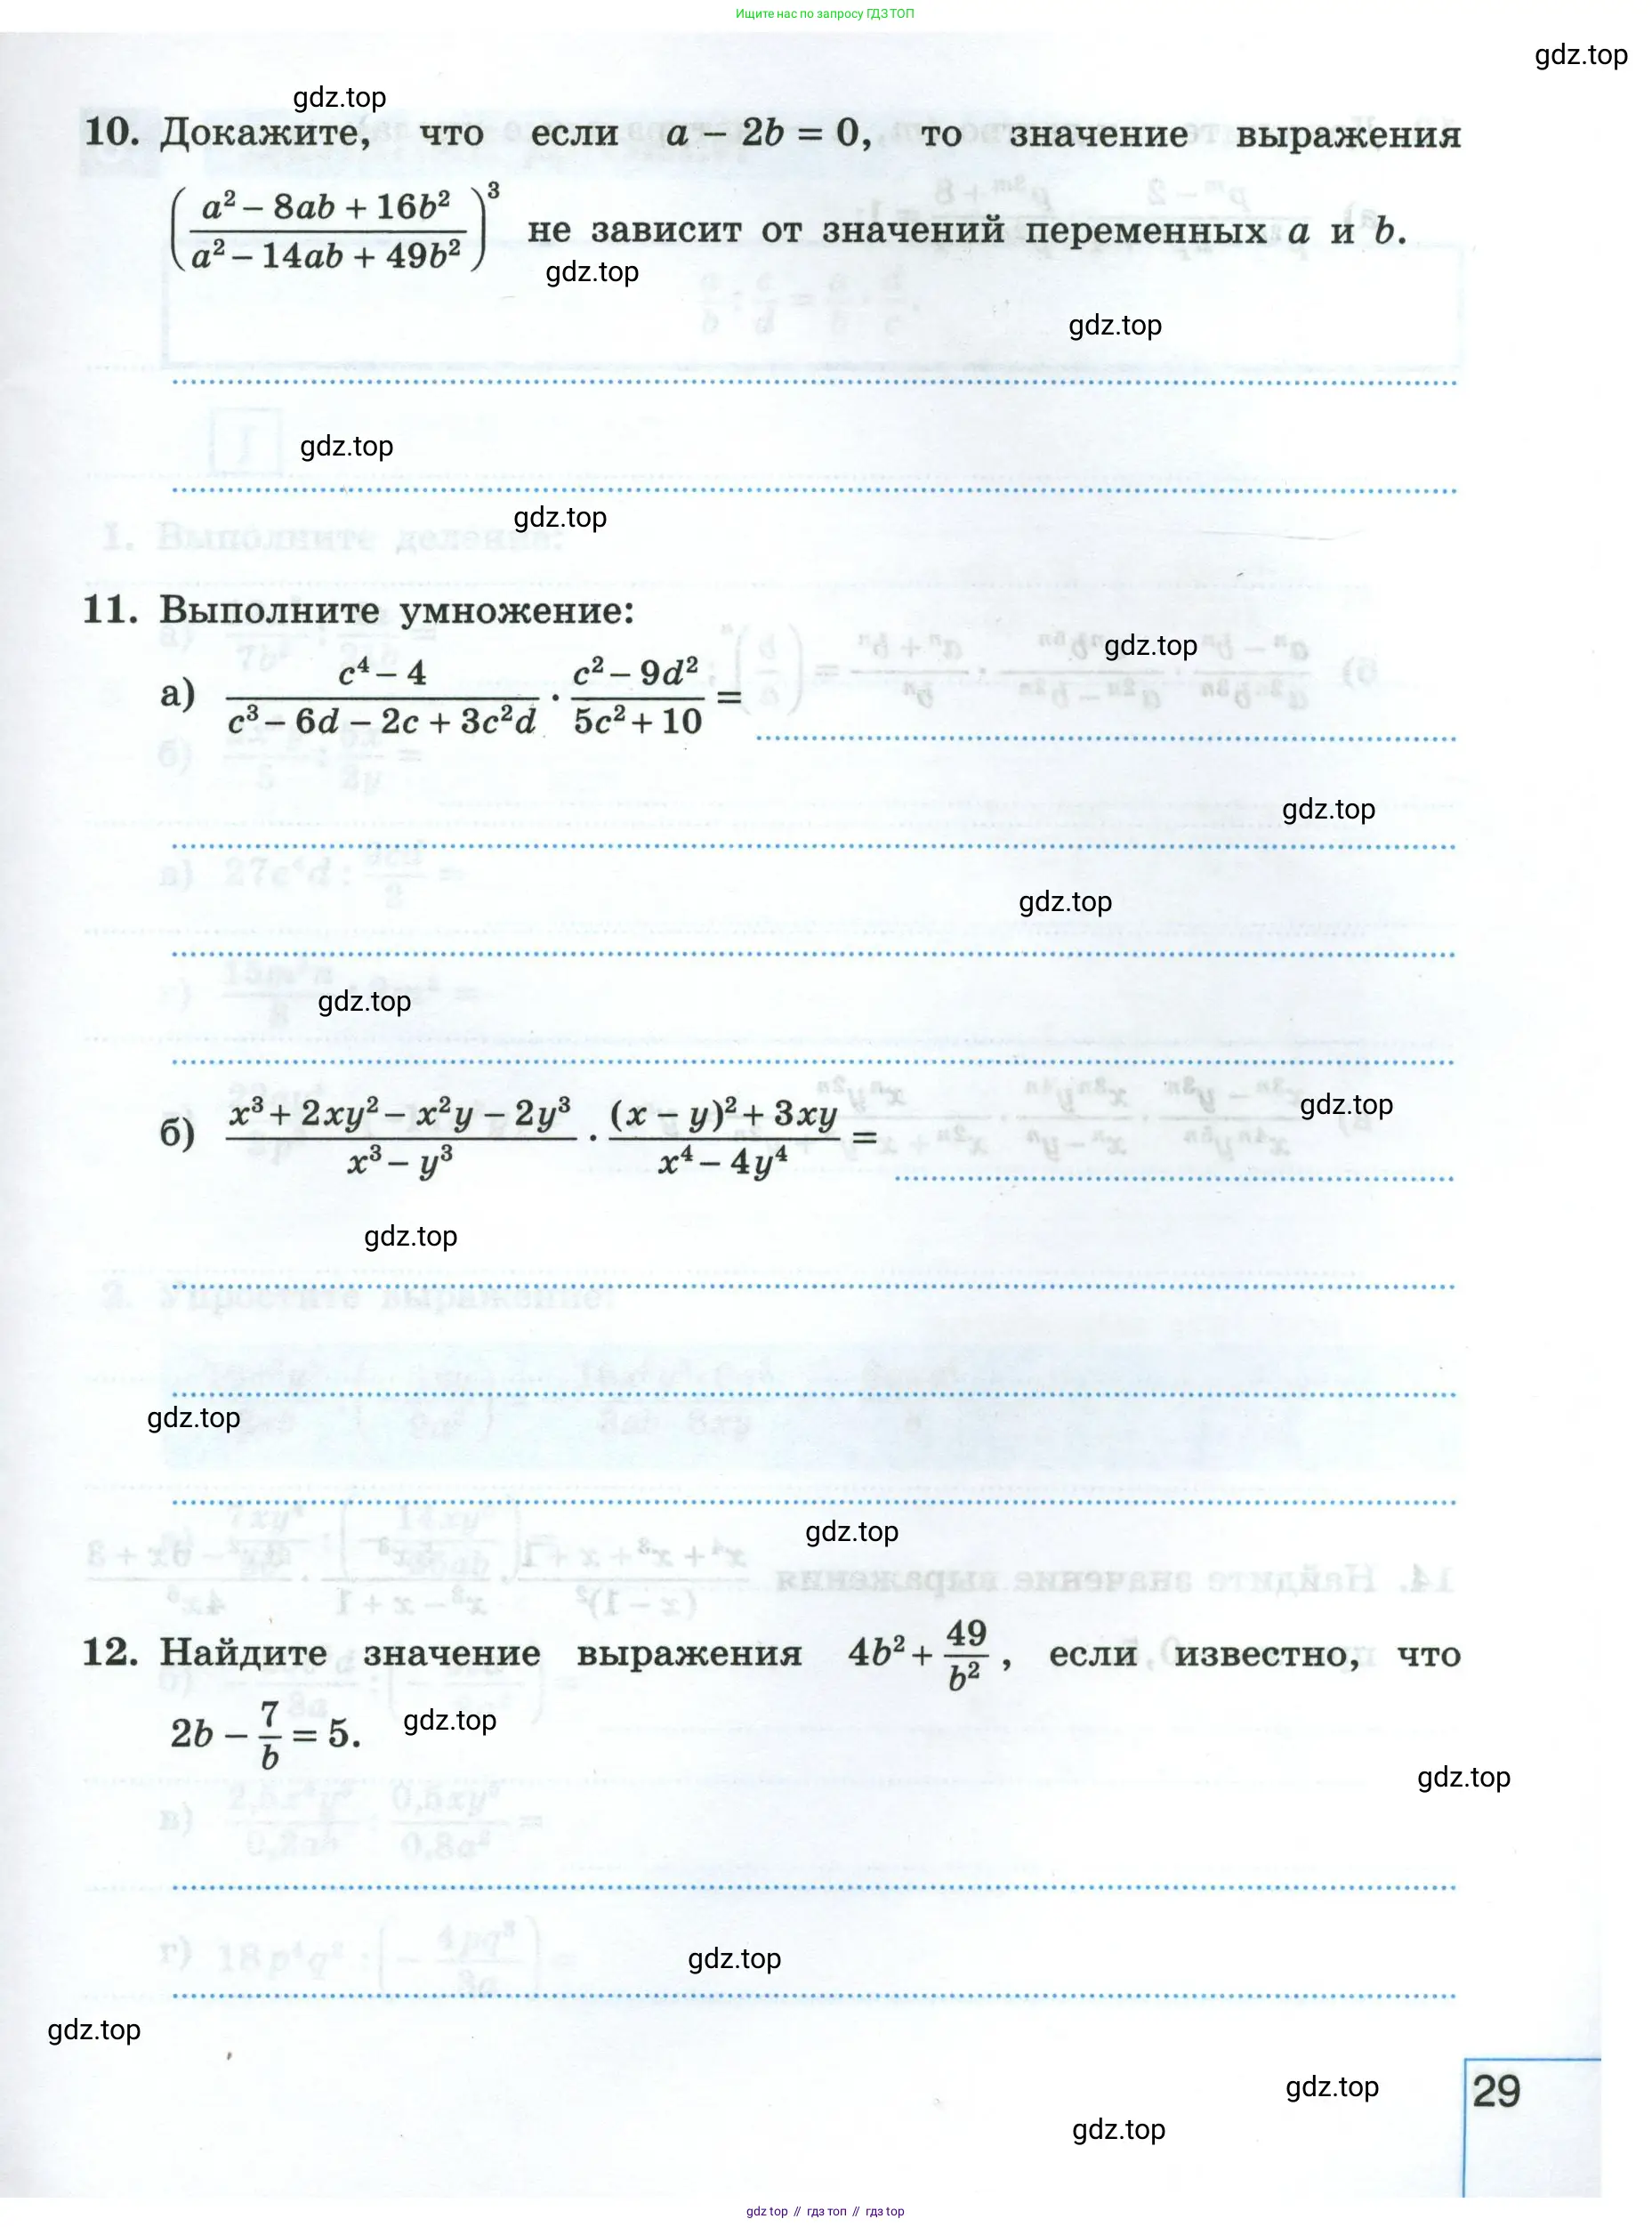 Ищите нас по запросу ГДЗ ТОП
gdz.top
gdz.top
10. Докажите, что если a − 2b = 0, то значение выражения
((a² − 8ab + 16b²)/(a² − 14ab + 49b²))³ не зависит от значений переменных a и b.
gdz.top
gdz.top
gdz.top
gdz.top
11. Выполните умножение:
gdz.top
а) (c⁴ − 4)/(c³ − 6d − 2c + 3c²d) · (c² − 9d²)/(5c² + 10) =
gdz.top
gdz.top
gdz.top
gdz.top
б) (x³ + 2xy² − x²y − 2y³)/(x³ − y³) · ((x − y)² + 3xy)/(x⁴ − 4y⁴) =
gdz.top
gdz.top
gdz.top
12. Найдите значение выражения 4b² + 49/b², если известно, что
2b − 7/b = 5.
gdz.top
gdz.top
gdz.top
gdz.top
gdz.top
29
gdz.top
gdz top // гдз топ // гдз top